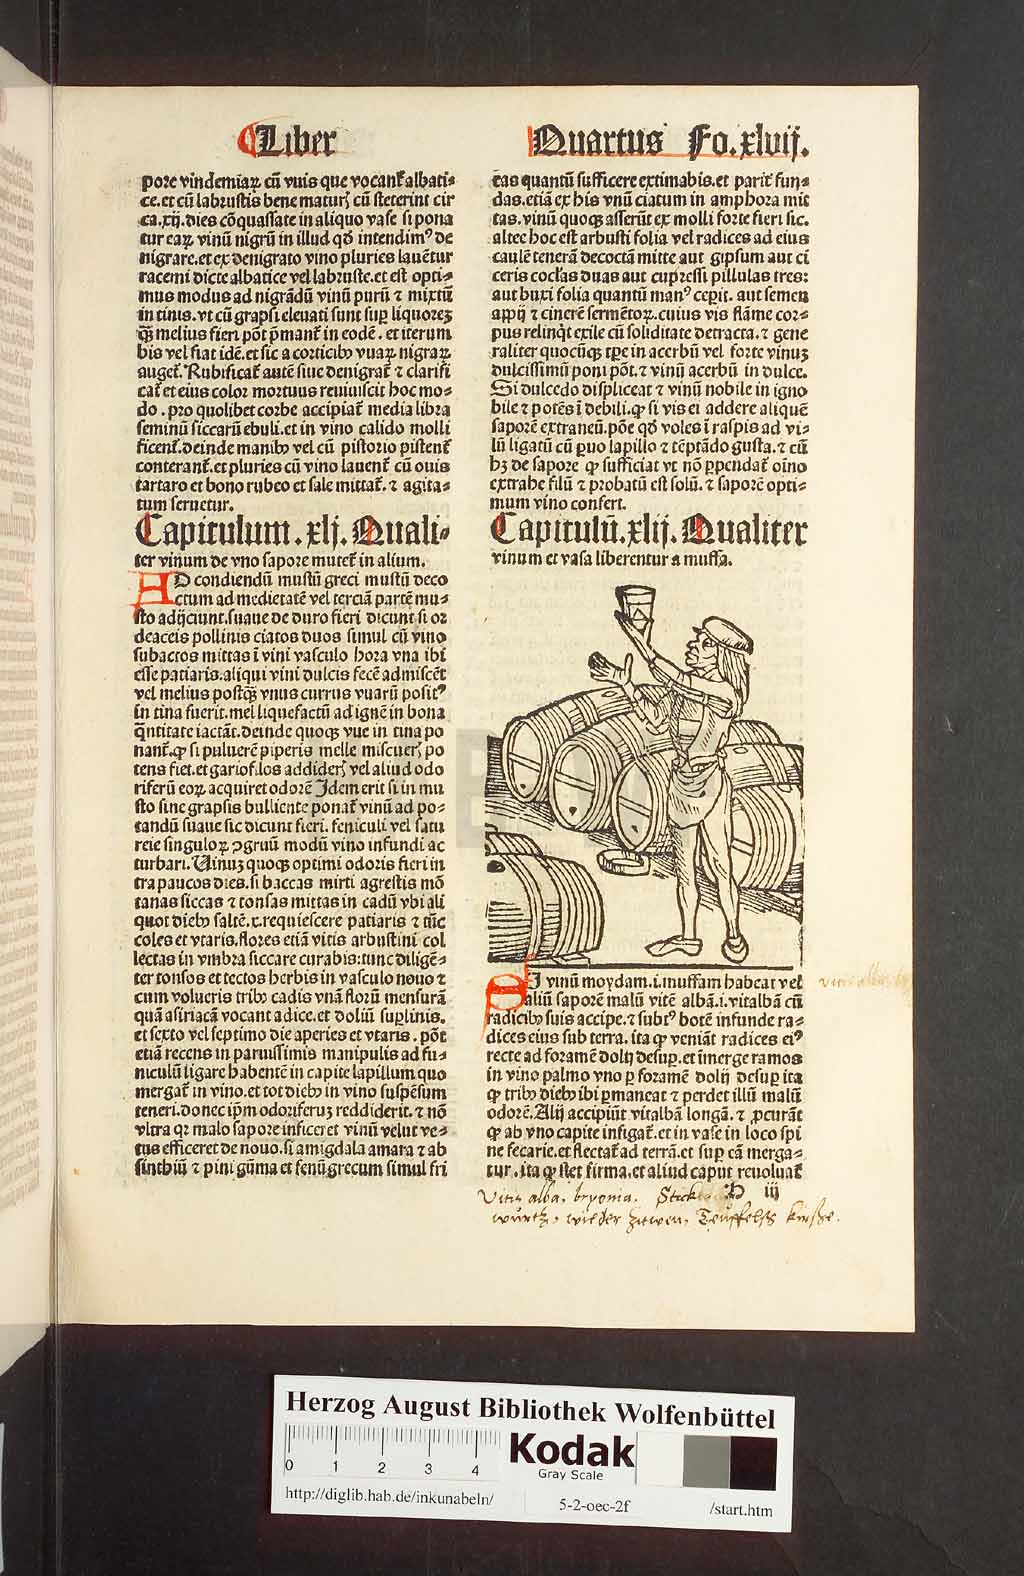 Liber
Quartus Fo.xlvij.
pore vindemiaꝝ cū vuis que vocant᷑ albati⸗
ce.et cū labrustis bene maturꝭ cū steterint cir
ca.xij.dies cōquassate in aliquo vase si pona
tur eaꝝ vinū nigrū in illud qd̄ intendimꝰ de
nigrare.et ex denigrato vino pluries lauētur
racemi dicte albatice vel labruste.et est opti⸗
mus modus ad nigrādū vinū purū ⁊ mixtū
in tinis.vt cū grapsi eleuati sunt suꝑ liquorez
qꝫ melius fieri pōt ꝑmant᷑ in eodē.et iterum
bis vel fiat idē.et sic a corticibꝰ vuaꝝ nigraꝝ
auget᷑. Rubificat᷑ autē siue denigrat᷑ ⁊ clarifi
cat᷑ et eius color mortuus reuiuiscit hoc mo⸗
do.pro quolibet corbe accipiat᷑ media libra
seminū siccarū ebuli.et in vino calido molli
ficent᷑.deinde manibꝰ vel cū pistorio pistent᷑
conterant᷑.et pluries cū vino lauent᷑ cū ouis
tartaro et bono rubeo et sale mittat᷑.⁊ agita⸗
tum seruetur.
Capitulum.xlj.Quali⸗
ter vinum de vno sapore mutet᷑ in alium.
AD condiendū mustū greci mustū deco
ctum ad medietatē vel terciā partē mu⸗
sto adijciunt.suaue de duro fieri dicunt si or
deaceis pollinis ciatos duos simul cū vino
subactos mittas ī vini vasculo hora vna ibi
esse patiaris.aliqui vini dulcis fecē admiscēt
vel melius postqꝫ vnus currus vuarū positꝰ
in tina fuerit.mel liquefactū ad ignē in bona
q̄ntitate iactāt.deinde quoqꝫ vue in tina po
nant᷑.ꝙ si puluerē piperis melle miscuerꝭ po
tens fiet.et gariofilos addiderꝭ vel aliud odo
riferū eoꝝ acquiret odorē Idem erit si in mu
sto sine grapsis bulliente ponat᷑ vinū ad po⸗
tandū suaue sic dicunt fieri.feniculi vel satu
reie singuloꝝ ꝯgruū modū vino infundi ac
turbari. Vinuꝫ quoqꝫ optimi odoris fieri in
tra paucos dies.si baccas mirti agrestis mō
tanas siccas ⁊ tonsas mittas in cadū vbi ali
quot diebꝰ saltē.x.requiescere patiaris ⁊ tūc
coles et vtaris.flores etiā vitis arbustini col
lectas in vmbra siccare curabis:tunc diligē⸗
ter tonsos et tectos herbis in vasculo nouo ⁊
cum volueris tribꝰ cadis vnā florū mensurā
quā asiriacā vocant adice.et doliū suꝑlinis.
et sexto vel septimo die aperies et vtaris.pōt
etiā recens in paruissimis manipulis ad fu⸗
niculū ligare habentē in capite lapillum quo
mergat᷑ in vino.et tot diebꝰ in vino suspēsum
teneri.donec ip̄m odoriferuꝫ reddiderit.⁊ nō
vltra qꝛ malo sapore inficeret vinū velut ve⸗
tus efficeret de nouo.si amigdala amara ⁊ ab
sinthiū ⁊ pini gūma et fenūgrecum simul fri
ēas quantū sufficere extimabis.et parit᷑ fun⸗
das.etiā ex his vnū ciatum in amphora mit
tas.vinū quoqꝫ asserūt ex molli forte fieri sic.
altee hoc est arbusti folia vel radices ad eius
caulē tenerā decoctā mitte aut gipsum aut ci
ceris coclꝭas duas aut cupressi pillulas tres:
aut buxi folia quantū manꝰ ceꝑit.aut semen
appij ⁊ cinerē sermētoꝝ.cuius vis flāme cor⸗
pus relinq̇t exile cū soliditate detracta.⁊ gene
raliter quocūqꝫ tꝑe in acerbū vel forte vinuꝫ
dulcissimū poni pōt.⁊ vinū acerbū in dulce.
Si dulcedo displiceat ⁊ vinū nobile in igno
bile ⁊ potēs ī debili.ꝙ si vis ei addere aliquē
saporē extraneū.pōe qd̄ voles ī raspis ad vi⸗
lū ligatū cū ꝑuo lapillo ⁊ tēptādo gusta.⁊ cū
hꝫ de sapore ꝙ sufficiat vt nō ꝑpendat᷑ oino
extrahe filū ⁊ probatū est solū.⁊ saporē opti⸗
mum vino confert.
Capitulū.xlij.Qualiter
vinum et vasa liberentur a muffa.
SI vinū moydam.i.muffam habeat vel
aliū saporē malū vitē albā.i.vitalbā cū
radicibꝰ suis accipe.⁊ subtꝰ botē infunde ra⸗
dices eius sub terra.ita ꝙ veniāt radices eiꝰ
recte ad foramē dolij desuꝑ.et īmerge ramos
in vino palmo vno ꝑ foramē dolij desuꝑ ita
ꝙ tribꝰ diebꝰ ibi ꝑmaneat ⁊ perdet illū malū
odorē.Alij accipiūt vitalbā longā.⁊ ꝓcurāt
ꝙ ab vno capite infigat᷑.et in vase in loco spi
ne fecarie.et flectat᷑ ad terrā.et suꝑ eā merga⸗
tur.ita ꝙ stet firma.et aliud caput reuoluat᷑
vitis alba
H iij
Vitis alba. bryonia. Stick
wurtz, wilder zitwen, Teuffelss kirsze.
Herzog August Bibliothek Wolfenbüttel
0 1 2 3 4
Kodak
Gray Scale
http://diglib.hab.de/inkunabeln/
5-2-oec-2f
/start.htm